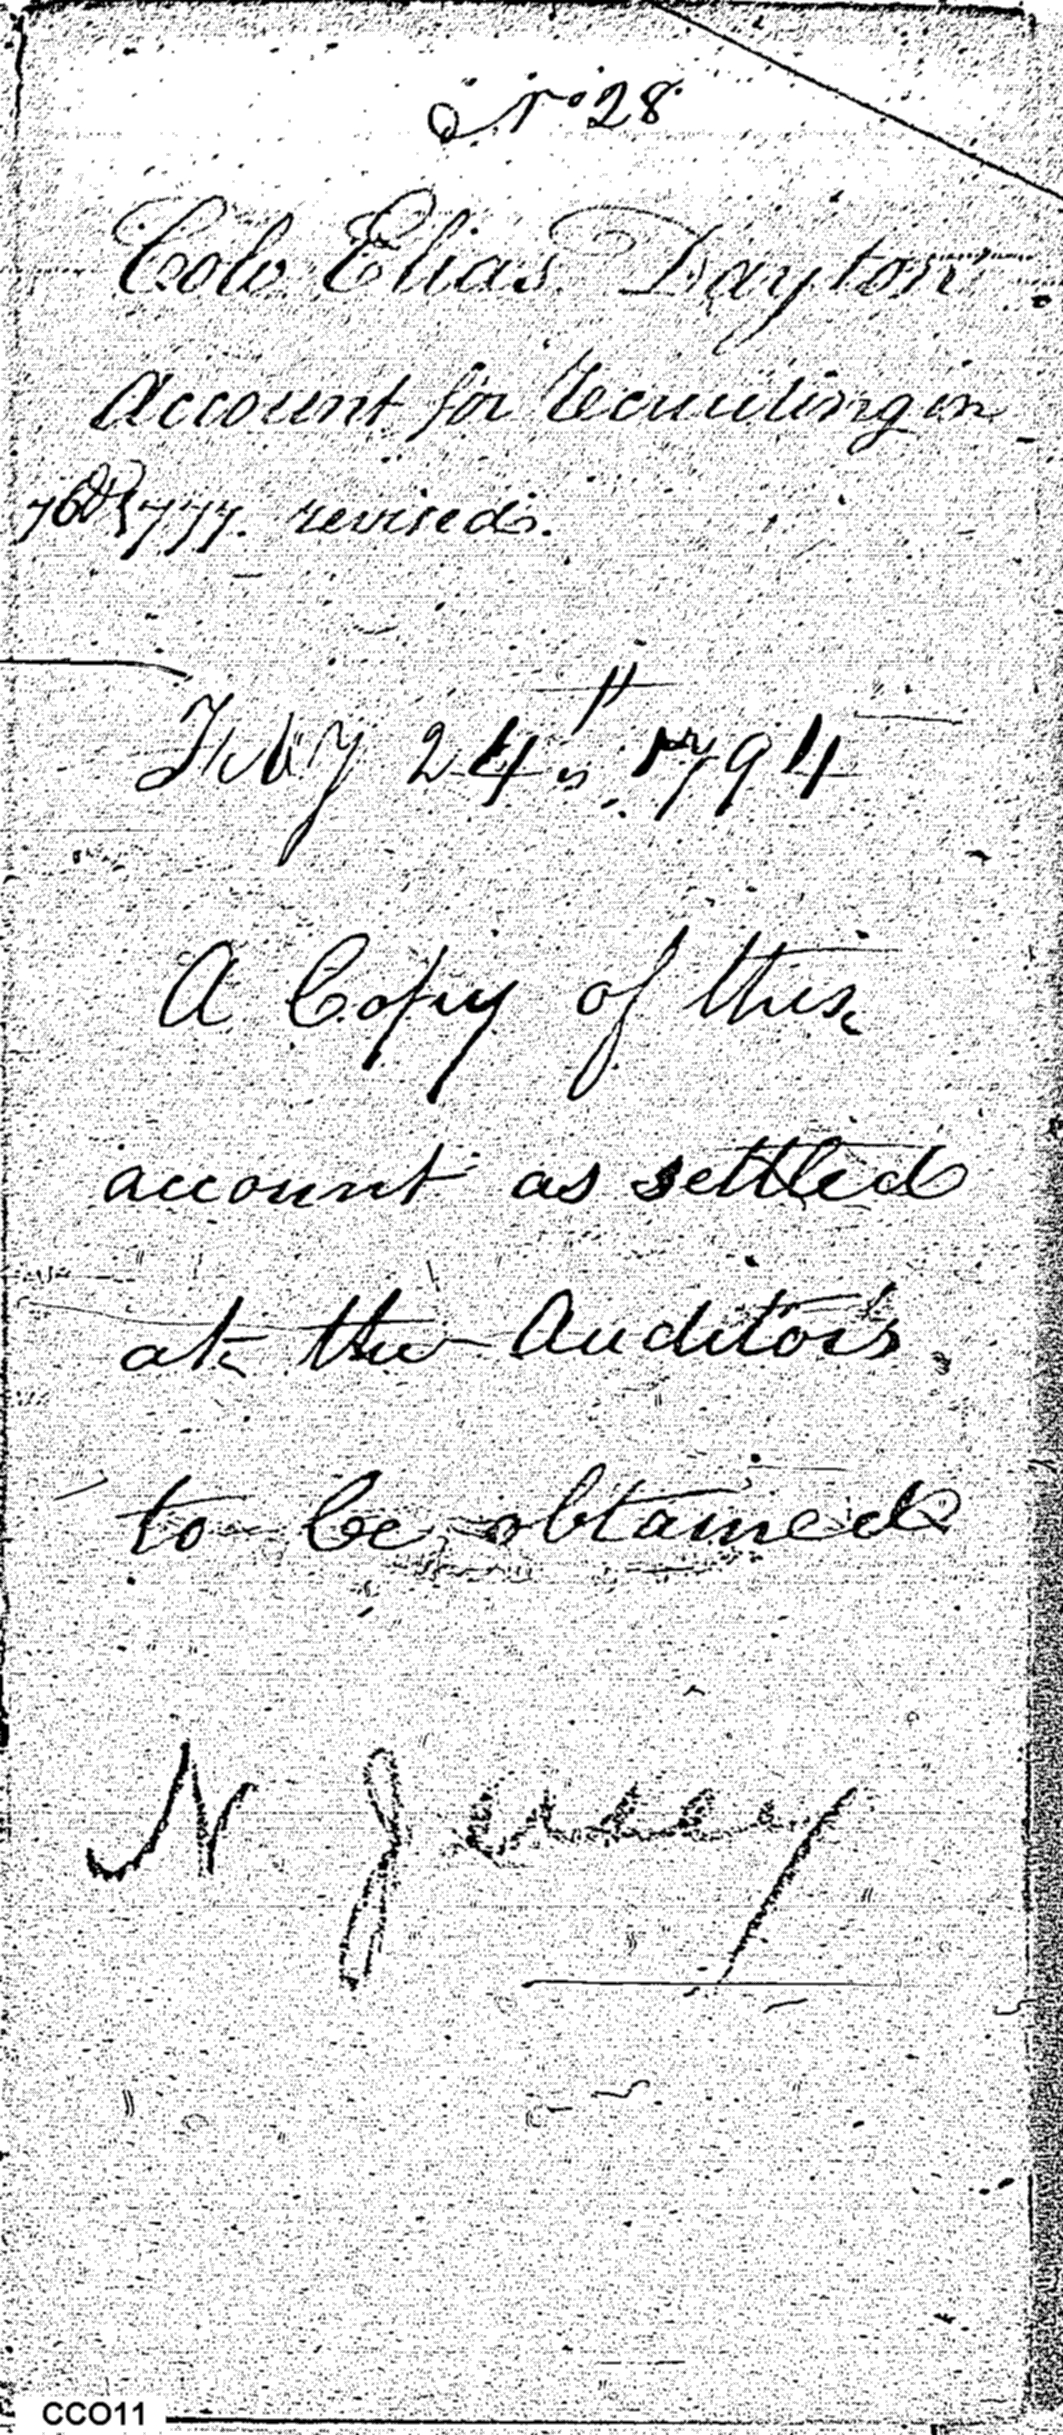 No. 28
Colo Elias Dayton
Account for Recruiting in
76 & 1777. revised.
Feby 24th 1794
A Copy of this
account as settled
at the Auditors
to be obtained
N Jersey
CCO11